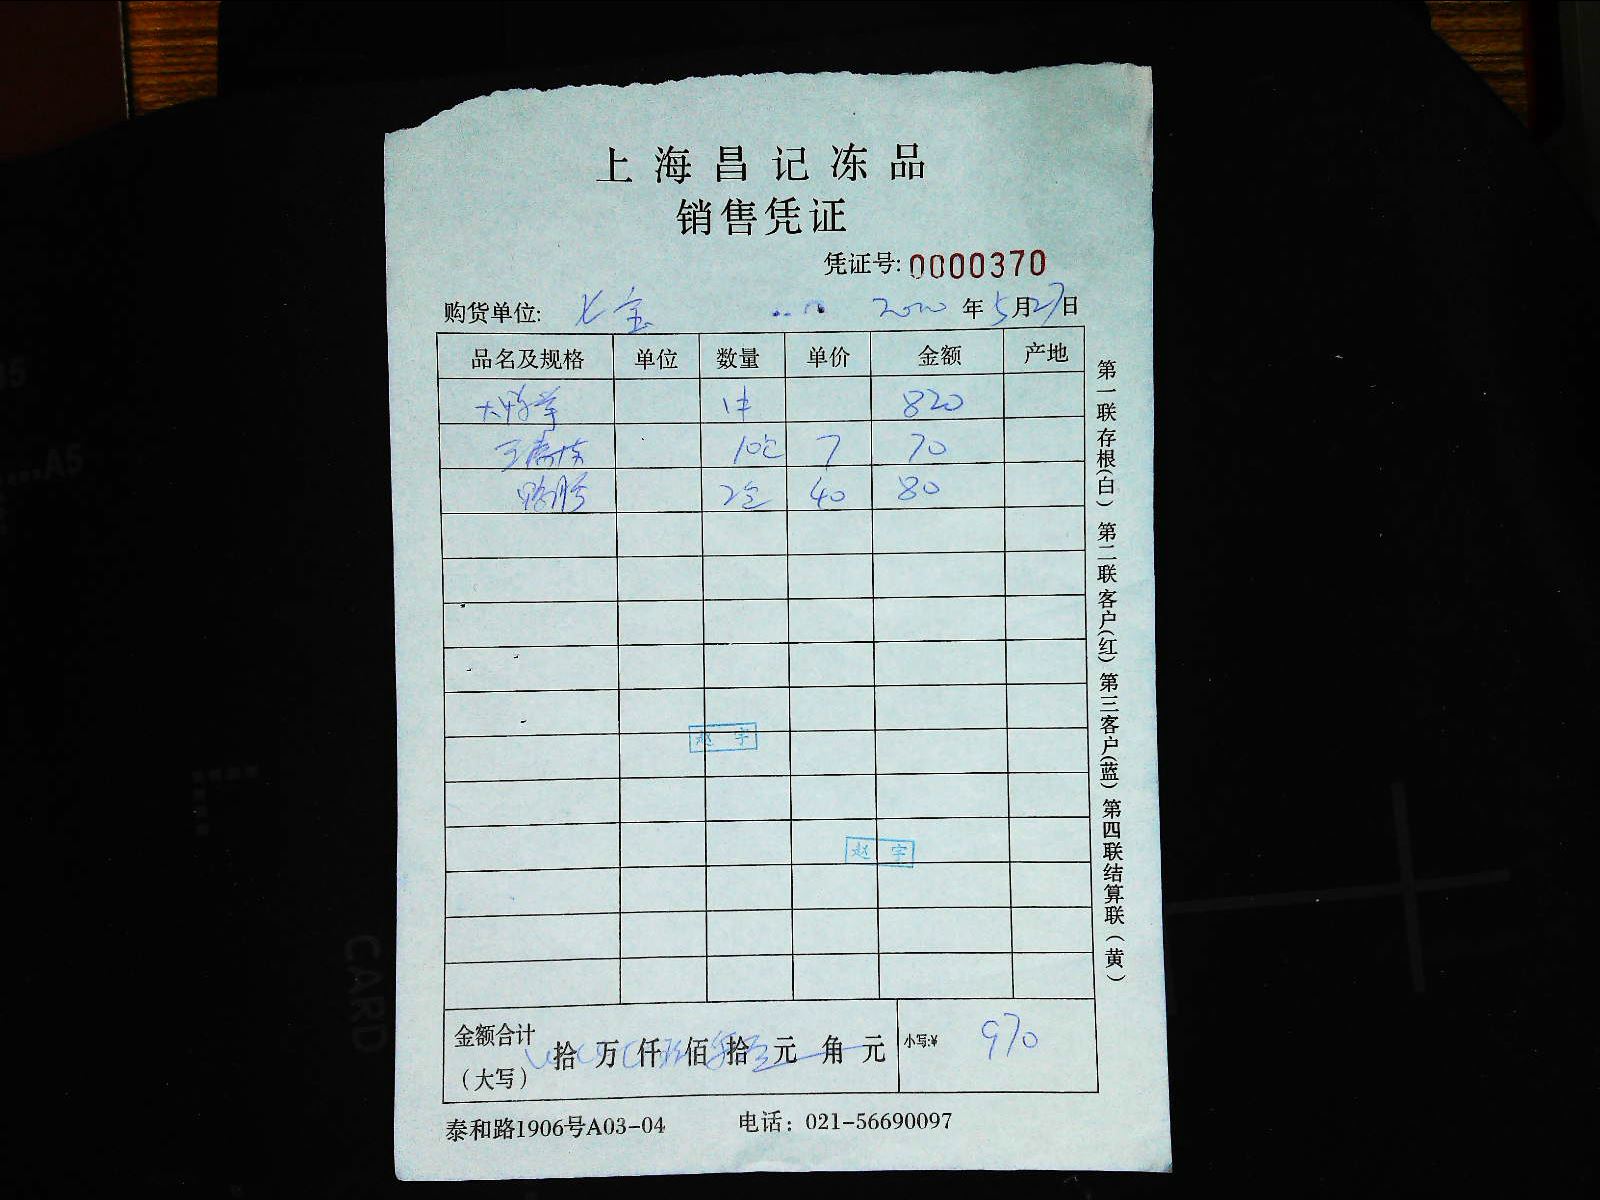 上海昌记冻品
销售凭证
凭证号: 0000370
购货单位: 七宝 2020 年 5 月 27 日
品名及规格 单位 数量 单价 金额 产地
1件 820
10包 7 70
2包 40 80
赵宇
赵宇
金额合计 (大写) 拾 万 仟 佰 拾 元 角 元 小写:¥ 970
泰和路1906号A03-04 电话: 021-56690097
第一联存根(白) 第二联客户(红) 第三客户(蓝) 第四联结算联(黄)
A5
CARD